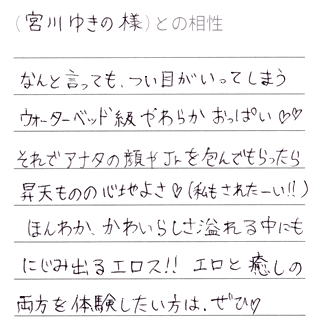 (宮川ゆきの様)との相性
なんと言っても、つい目がいってしまう
ウォーターベッド級やわらかおっぱい♡♡
それでアナタの顔やJr.を包んでもらったら
昇天ものの心地よさ♡(私もされたーい!!)
ほんわか、かわいらしさ溢れる中にも
にじみ出るエロス!! エロと癒しの
両方を体験したい方は、ぜひ♡